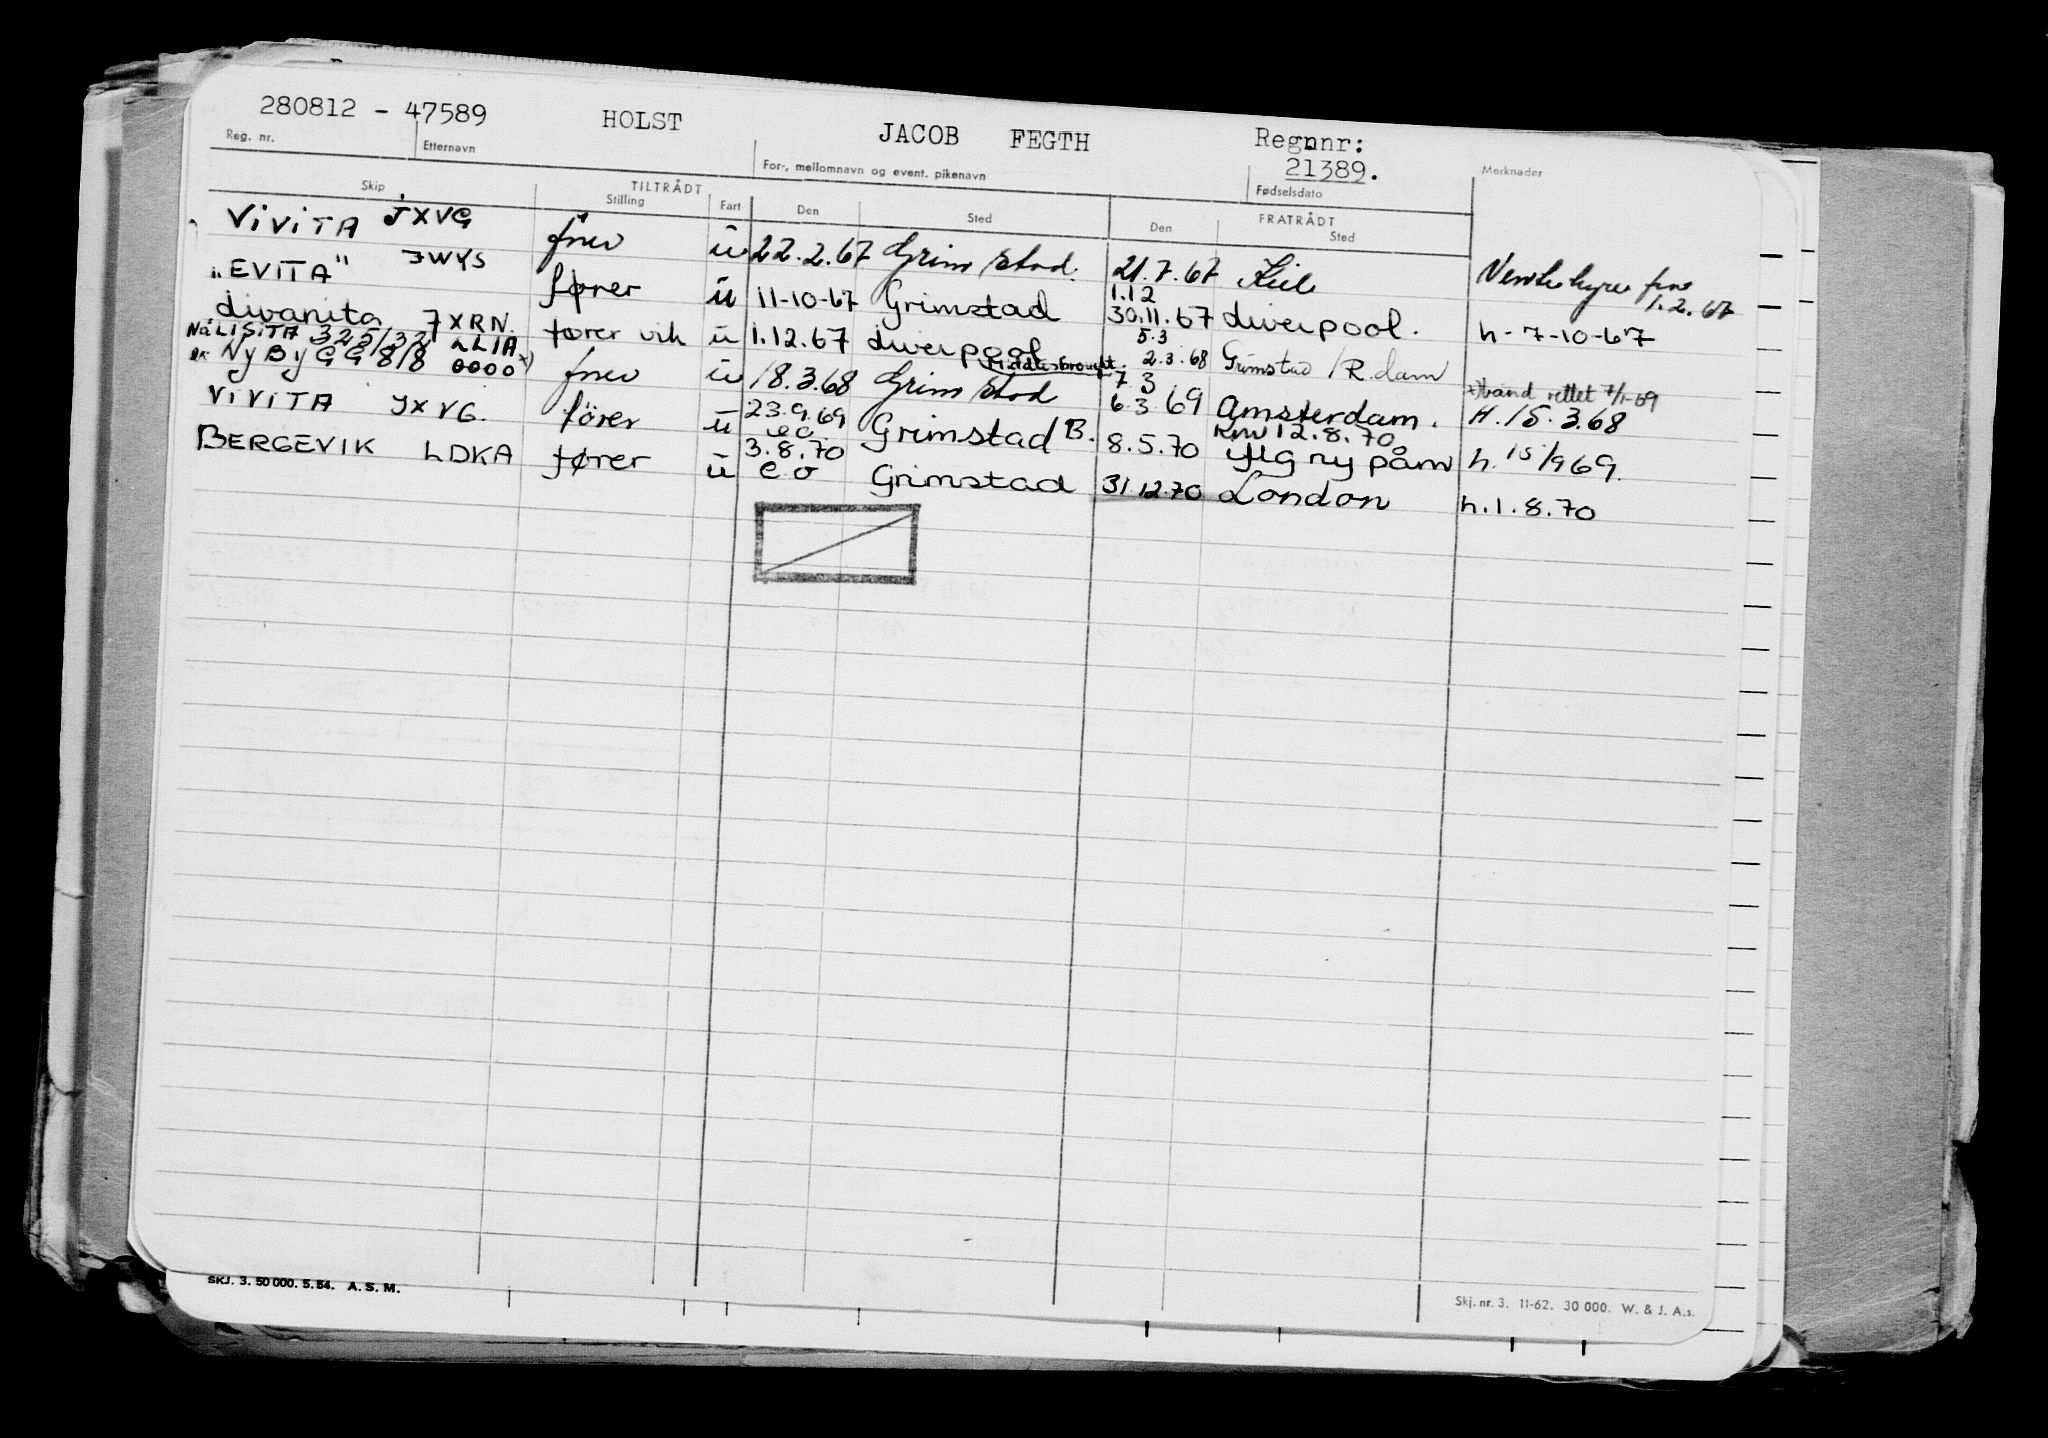 280812 - 47589 HOLST JACOB FEGTH Regnnr:
21389.
Reg. nr. Etternavn For-, mellomnavn og event. pikenavn Fødselsdato Merknader
TILTRÅDT FRATRÅDT
Skip Stilling Fart Den Sted Den Sted
ViViTA JXVG ü 22.2.67 Grimstad. 21.7.67 Kiel 1.2.67
"EVITA" JWYS fører ü 11-10-67 Grimstad 1.12 30.11.67 Liverpool. h-7-10-67
Livanita JXRN. fører vik ü 1.12.67 Liverpool 5.3 2.3.68 Grimstad / R.dam
LISiTA 325/32 LLIA x) Middlesbrough. 7 3 x) rettet 7/1-69
NyByGG 8/8 0000 ü 18.3.68 Grimstad 6.3.69 Amsterdam. H.15.3.68
ViViTA JXVG. fører ü 23.9.69 eo Grimstad B. 8.5.70 12.8.70 ny påm h.15/9 69.
BERGEVIK LDKA fører ü 3.8.70 e.o Grimstad 31.12.70 London h.1.8.70
SKJ. 3. 50 000. 5. 64. A. S. M.
Skj. nr. 3. 11-62. 30 000. W. & J. A.s.